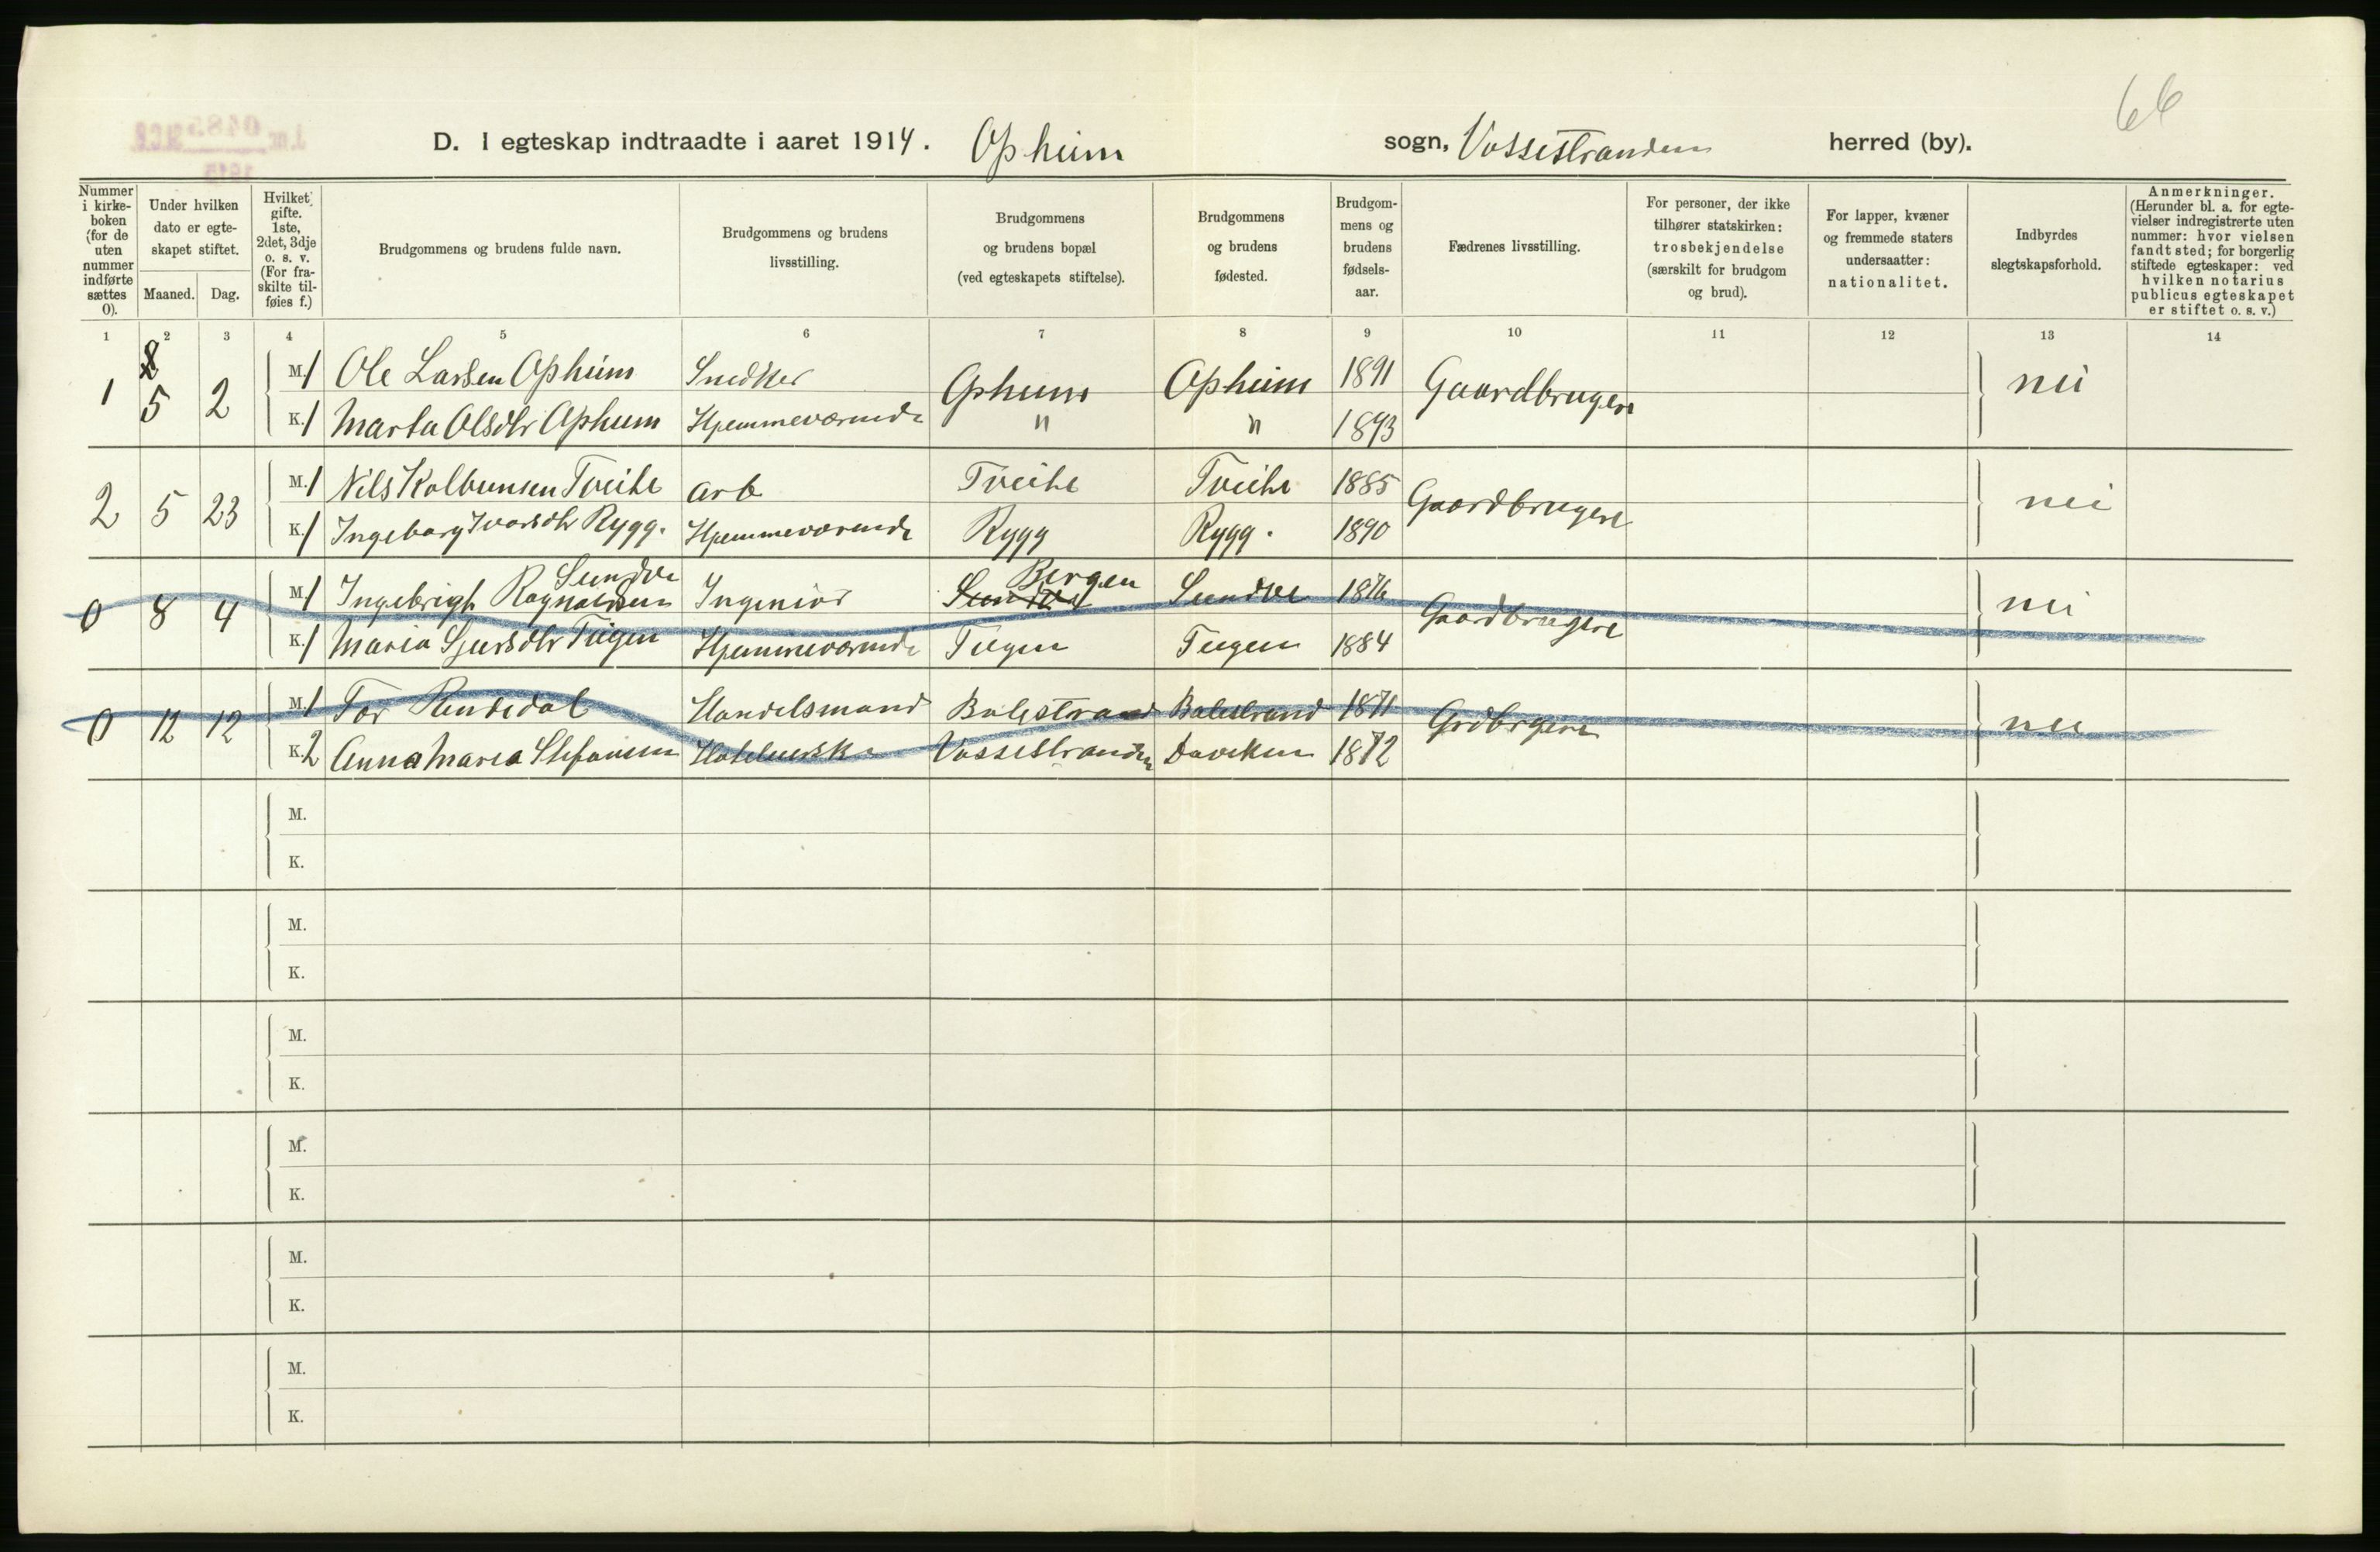 66
D. I egteskap indtraadte i aaret 1914. Opheim sogn, Vossestranden herred (by).
Nummer i kirke-boken (for de uten nummer indførte sættes 0).
Under hvilken dato er egte-skapet stiftet.
Maaned. Dag.
Hvilket gifte. 1ste, 2det, 3dje o. s. v. (For fra-skilte til-føies f.)
Brudgommens og brudens fulde navn.
Brudgommens og brudens livsstilling.
Brudgommens og brudens bopæl (ved egteskapets stiftelse).
Brudgommens og brudens fødested.
Brudgom-mens og brudens fødsels-aar.
Fædrenes livsstilling.
For personer, der ikke tilhører statskirken: trosbekjendelse (særskilt for brudgom og brud).
For lapper, kvæner og fremmede staters undersaatter: nationalitet.
Indbyrdes slegtskapsforhold.
Anmerkninger. (Herunder bl. a. for egte-vielser indregistrerte uten nummer: hvor vielsen fandt sted; for borgerlig stiftede egteskaper: ved hvilken notarius publicus egteskapet er stiftet o. s. v.)
1 2 3 4 5 6 7 8 9 10 11 12 13 14
1 5 2 M. 1 Ole Larsen Opheim Snedker Opheim Opheim 1891 Gaardbrugere nei
K. 1 Marta Olsdtr Opheim Hjemmeværende " " 1893
2 5 23 M. 1 Nils Kolbensen Tveite Arb Tveite Tveite 1885 Gaardbrugere nei
K. 1 Ingeborg Ivarsdtr Rygg. Hjemmeværende Rygg Rygg. 1890
Sundve Bergen
0 8 4 M. 1 Ingebrigt Ragnaldsen Ingeniör Sundve Sundve 1876 Gaardbrugere nei
K. 1 Maria Sjursdtr Tugen Hjemmeværende Tugen Tugen 1884
0 12 12 M. 1 Tor Handelsmand Balestrand Balestrand 1871 Grdbrgere nei
K. 2 Anna Maria Stefansen Vossestranden Daviken 1872
M.
K.
M.
K.
M.
K.
M.
K.
M.
K.
M.
K.